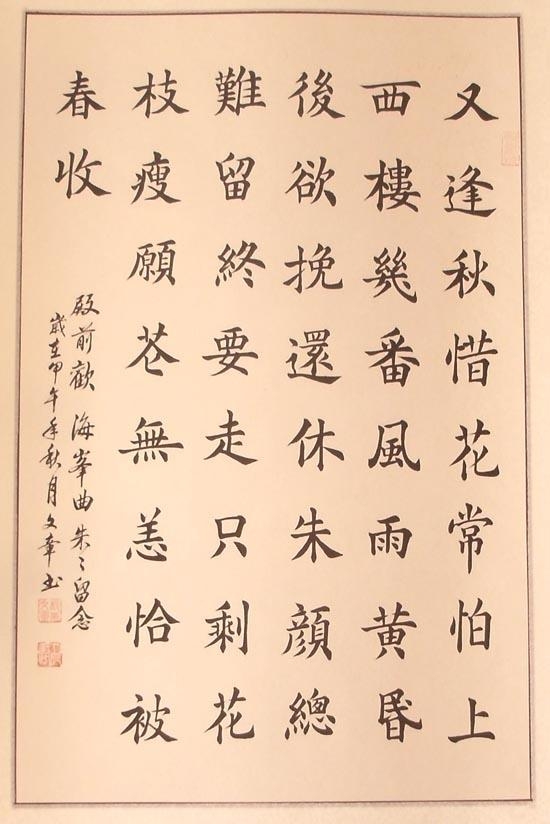 又逢秋惜花常怕上
西樓幾番風雨黃昬
後欲挽還休朱顔總
難留終要走只剩花
枝瘦願花無恙恰被
春收
殿前歡 海峯曲 朱〻留念
歲在甲午年秋月文章书